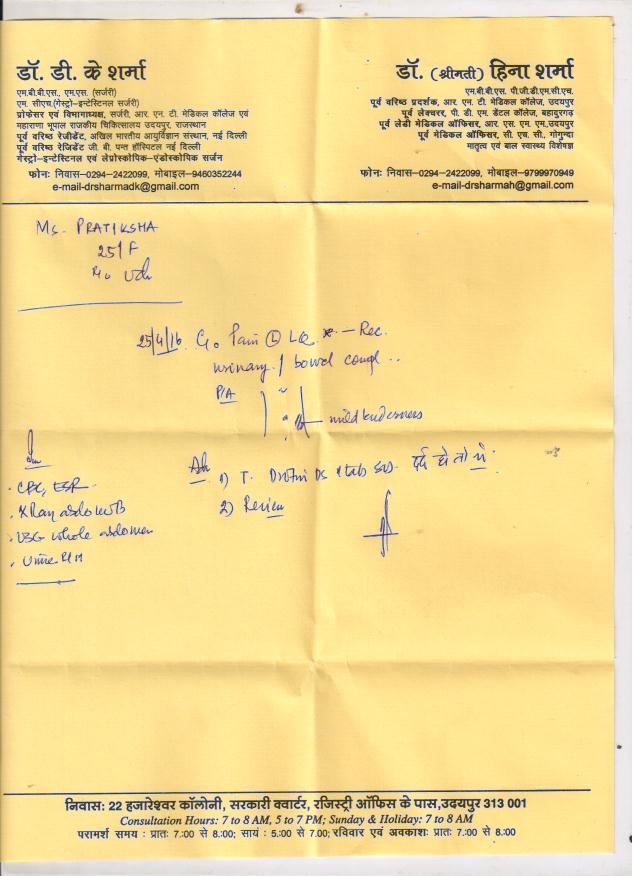 डॉ. डी. के शर्मा
एम.बी.बी.एस., एम.एस. (सर्जरी)
एम. सीएच.(गेस्ट्रो–इन्टेस्टिनल सर्जरी)
प्रोफेसर एवं विभागाध्यक्ष, सर्जरी, आर. एन. टी. मेडिकल कॉलेज एवं
महाराणा भूपाल राजकीय चिकित्सालय उदयपुर, राजस्थान
पूर्व वरिष्ठ रेजीडेंट, अखिल भारतीय आयुर्विज्ञान संस्थान, नई दिल्ली
पूर्व वरिष्ठ रेजिडेंट जी. बी. पन्त हॉस्पिटल नई दिल्ली
गेस्ट्रो–इन्टेस्टिनल एवं लेप्रोस्कोपिक–एंडोस्कोपिक सर्जन
फोनः निवास–0294–2422099, मोबाइल–9460352244
e-mail-drsharmadk@gmail.com
डॉ. (श्रीमती) हिना शर्मा
एम.बी.बी.एस. पी.जी.डी.एम.सी.एच.
पूर्व वरिष्ठ प्रदर्शक, आर. एन. टी. मेडिकल कॉलेज, उदयपुर
पूर्व लेक्चरर, पी. डी. एम. डेंटल कॉलेज, बहादुरगढ़
पूर्व लेडी मेडिकल ऑफिसर, आर. एस. एम. एम.,उदयपुर
पूर्व मेडिकल ऑफिसर, सी. एच. सी., गोगुन्दा
मातृत्व एवं बाल स्वास्थ्य विशेषज्ञ
फोनः निवास–0294–2422099, मोबाइल–9799970949
e-mail-drsharmah@gmail.com
Ms. PRATIKSHA
25/F
R/o Udr
25/4/16 C/o Pain (L) LQ – Rec.
urinary / bowel compl
P/A
mild tenderness
Adv
1) T. DS 1 tab SOS दर्द हो तो
2) Review
. CBC, ESR
. X Ray abdo KUB
. USG whole abdomen
. Urine R/M
निवासः 22 हजारेश्वर कॉलोनी, सरकारी क्वार्टर, रजिस्ट्री ऑफिस के पास,उदयपुर 313 001
Consultation Hours: 7 to 8 AM, 5 to 7 PM; Sunday & Holiday: 7 to 8 AM
परामर्श समय : प्रातः 7:00 से 8:00; सायं : 5:00 से 7.00; रविवार एवं अवकाशः प्रातः 7:00 से 8:00